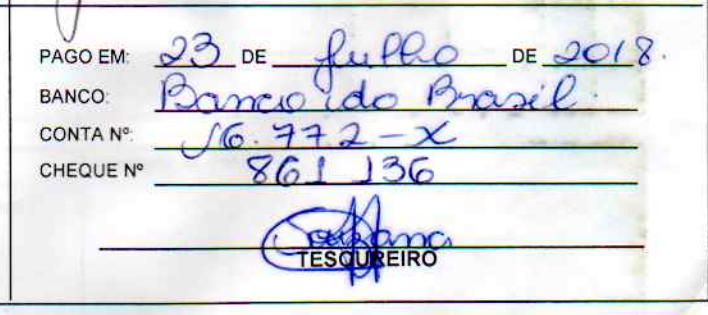 PAGO EM: 23 DE Julho DE 2018.
BANCO: Banco do Brasil.
CONTA Nº: 16.772-X
CHEQUE Nº 861136
TESOUREIRO